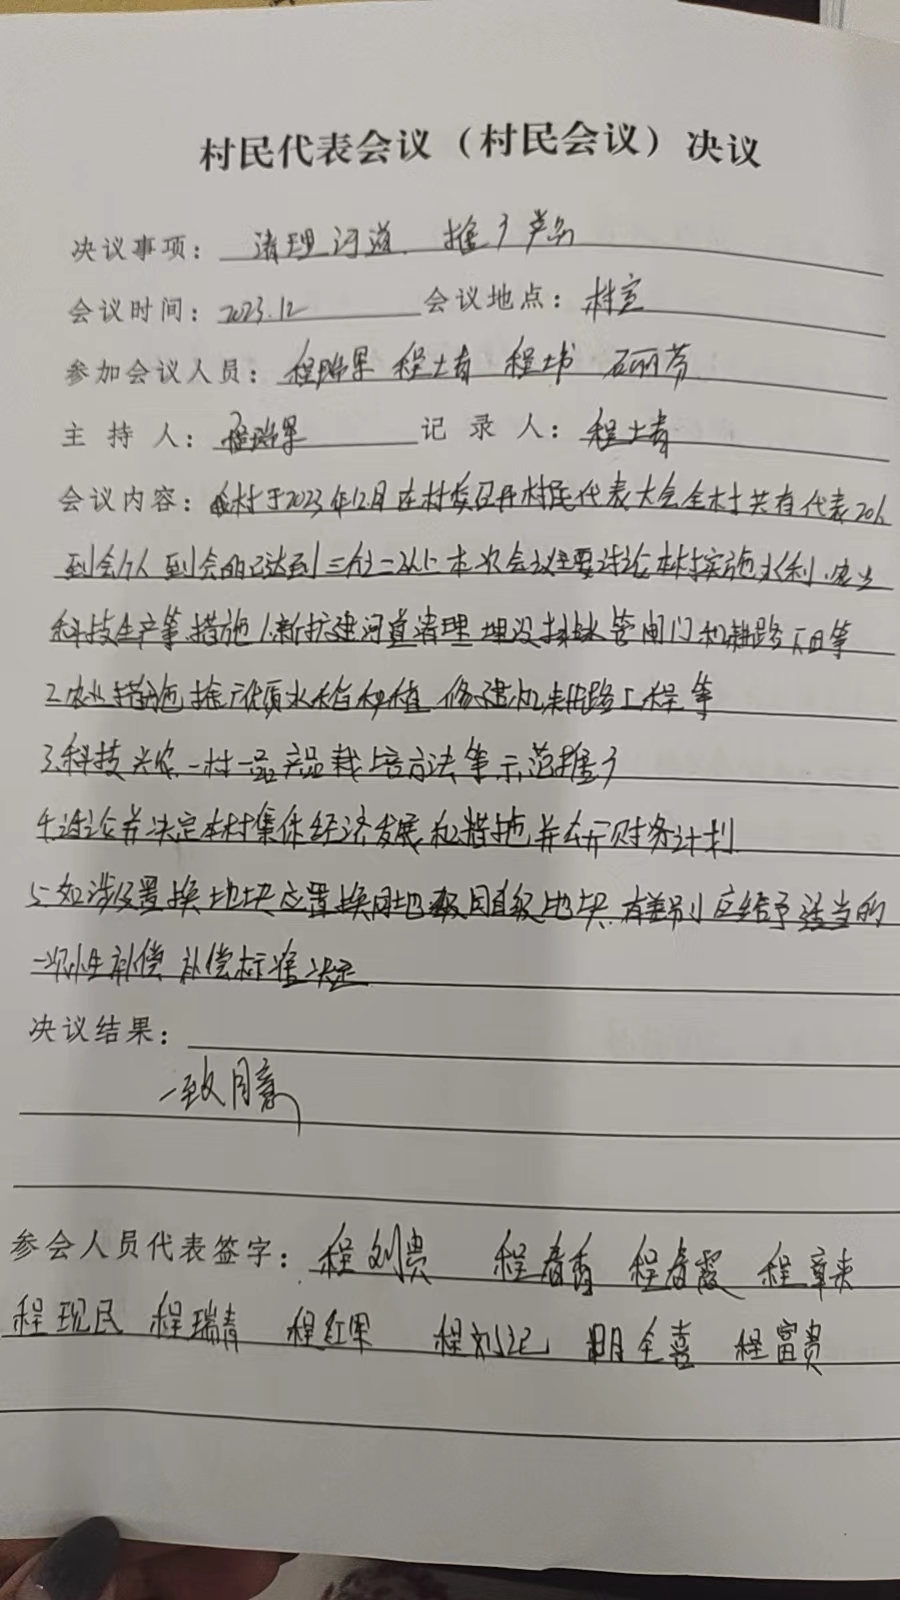 村民代表会议（村民会议）决议
决议事项： 清理河道、推广
会议时间： 2023.12 会议地点： 村室
参加会议人员： 程瑞军 程士青 程士书 石丽芳
主持人： 程瑞军 记录人： 程士青
会议内容： 我村于2023年12月在村委召开村民代表大会全村共有代表20人
到会 人 到会的已达到三分之二以上本次会议主要讨论本村实施水利、农业
科技生产等措施1.新扩建河道清理 埋设排水管闸门和耕路 等
2.农业措施推广优质水稻种植 修建机耕路工程等
3.科技兴农、一村一品产品栽培方法等示范推广
4.讨论并决定本村集体经济发展和措施并公开财务计划
5.如涉及置换地块应置换同地 同级地块、有差别应给予适当的
一次性补偿 补偿标准决定
决议结果：
一致同意
参会人员代表签字： 程刘贵 程春香 程春霞 程章来
程现民 程瑞青 程红军 程刘记 明全喜 程富贵